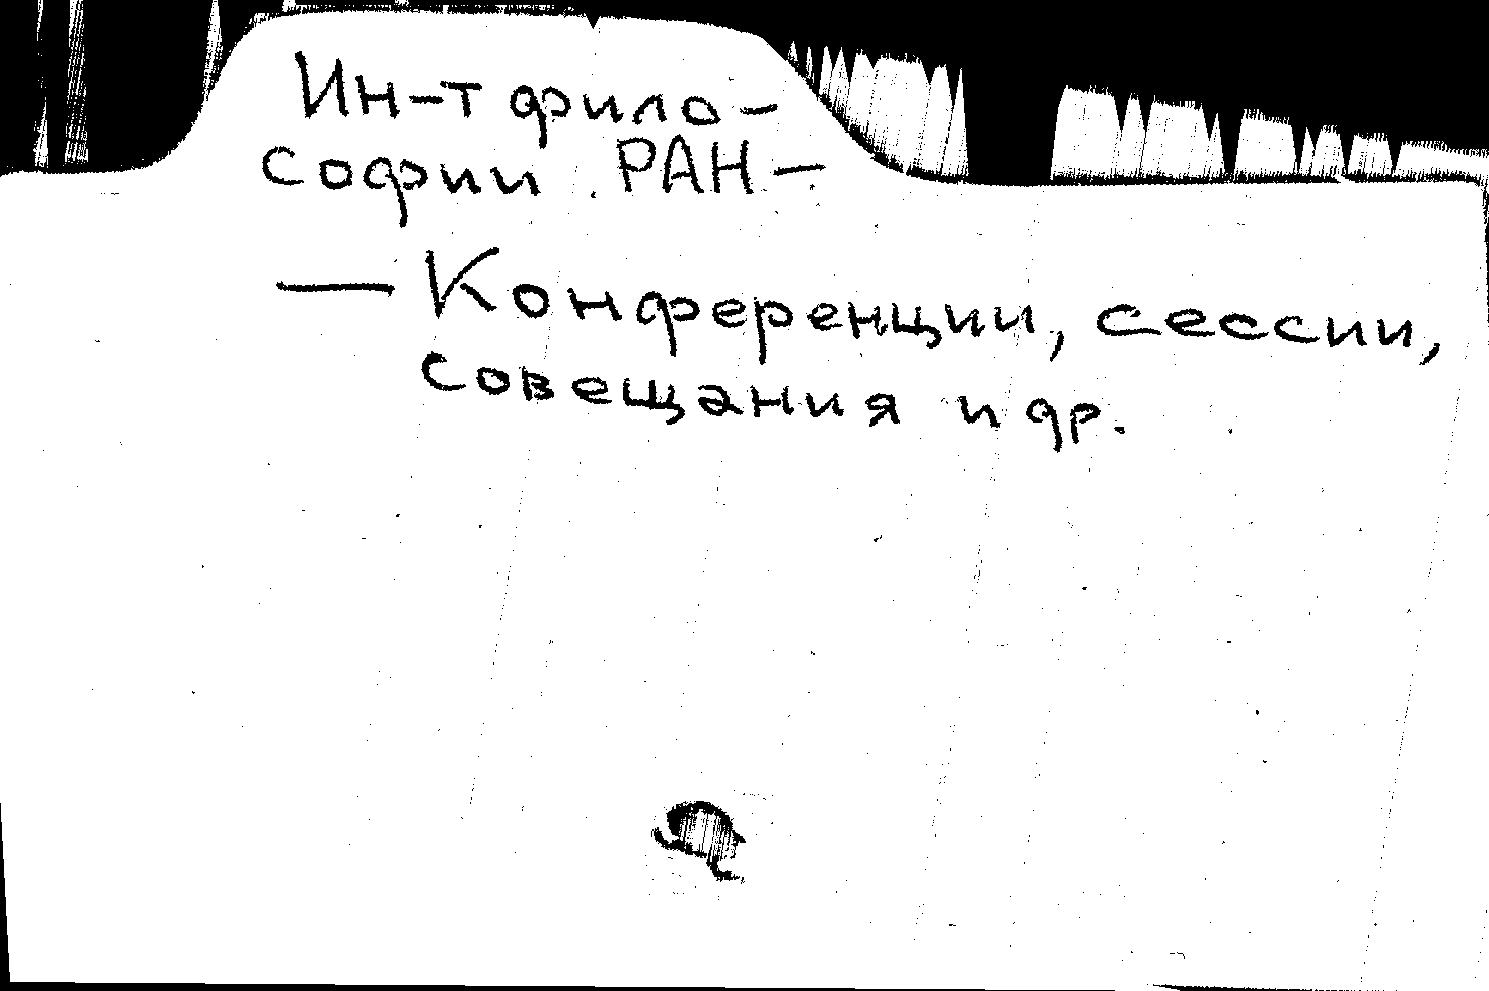 Ин-т фило-
софии РАН -
— Конференции, сессии,
совещания и др.